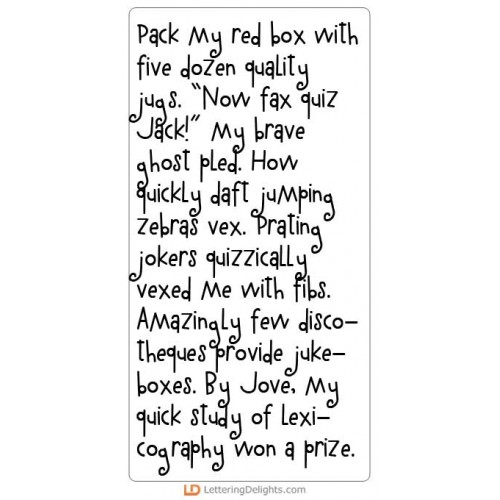 Pack My red box with
five dozen quality
jugs. "Now fax quiz
Jack!" My brave
ghost pled. How
quickly daft jumping
zebras vex. Prating
jokers quizzically
vexed Me with fibs.
Amazingly few disco-
theques provide juke-
boxes. By Jove, My
quick study of lexi-
cography won a prize.
LD LetteringDelights.com